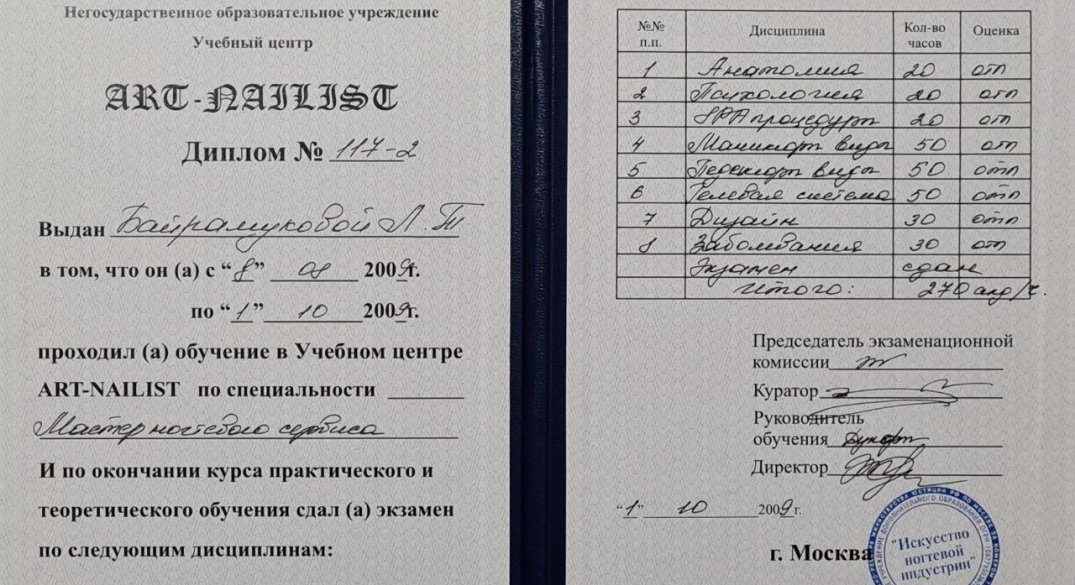 Негосударственное образовательное учреждение
Учебный центр
ART-NAILIST
Диплом № 117-2
Выдан Байрамуковой Л.Т
в том, что он (а) с “8” 08 2009г.
по “1” 10 2009г.
проходил (а) обучение в Учебном центре
ART-NAILIST по специальности
Мастер ногтевого сервиса
И по окончании курса практического и
теоретического обучения сдал (а) экзамен
по следующим дисциплинам:
№№ п.п. Дисциплина Кол-во часов Оценка
1 Анатомия 20 отл
2 Психология 20 отл
3 SPA процедуры 20 отл
4 Маникюр виды 50 отл
5 Педикюр виды 50 отл
6 Гелевая система 50 отл
7 Дизайн 30 отл
8 Заболевания 30 отл
Экзамен сдан
Итого: 270 акд/ч.
Председатель экзаменационной
комиссии
Куратор
Руководитель
обучения
Директор
“1” 10 2009г.
г. Москва
"Искусство
ногтевой
индустрии"